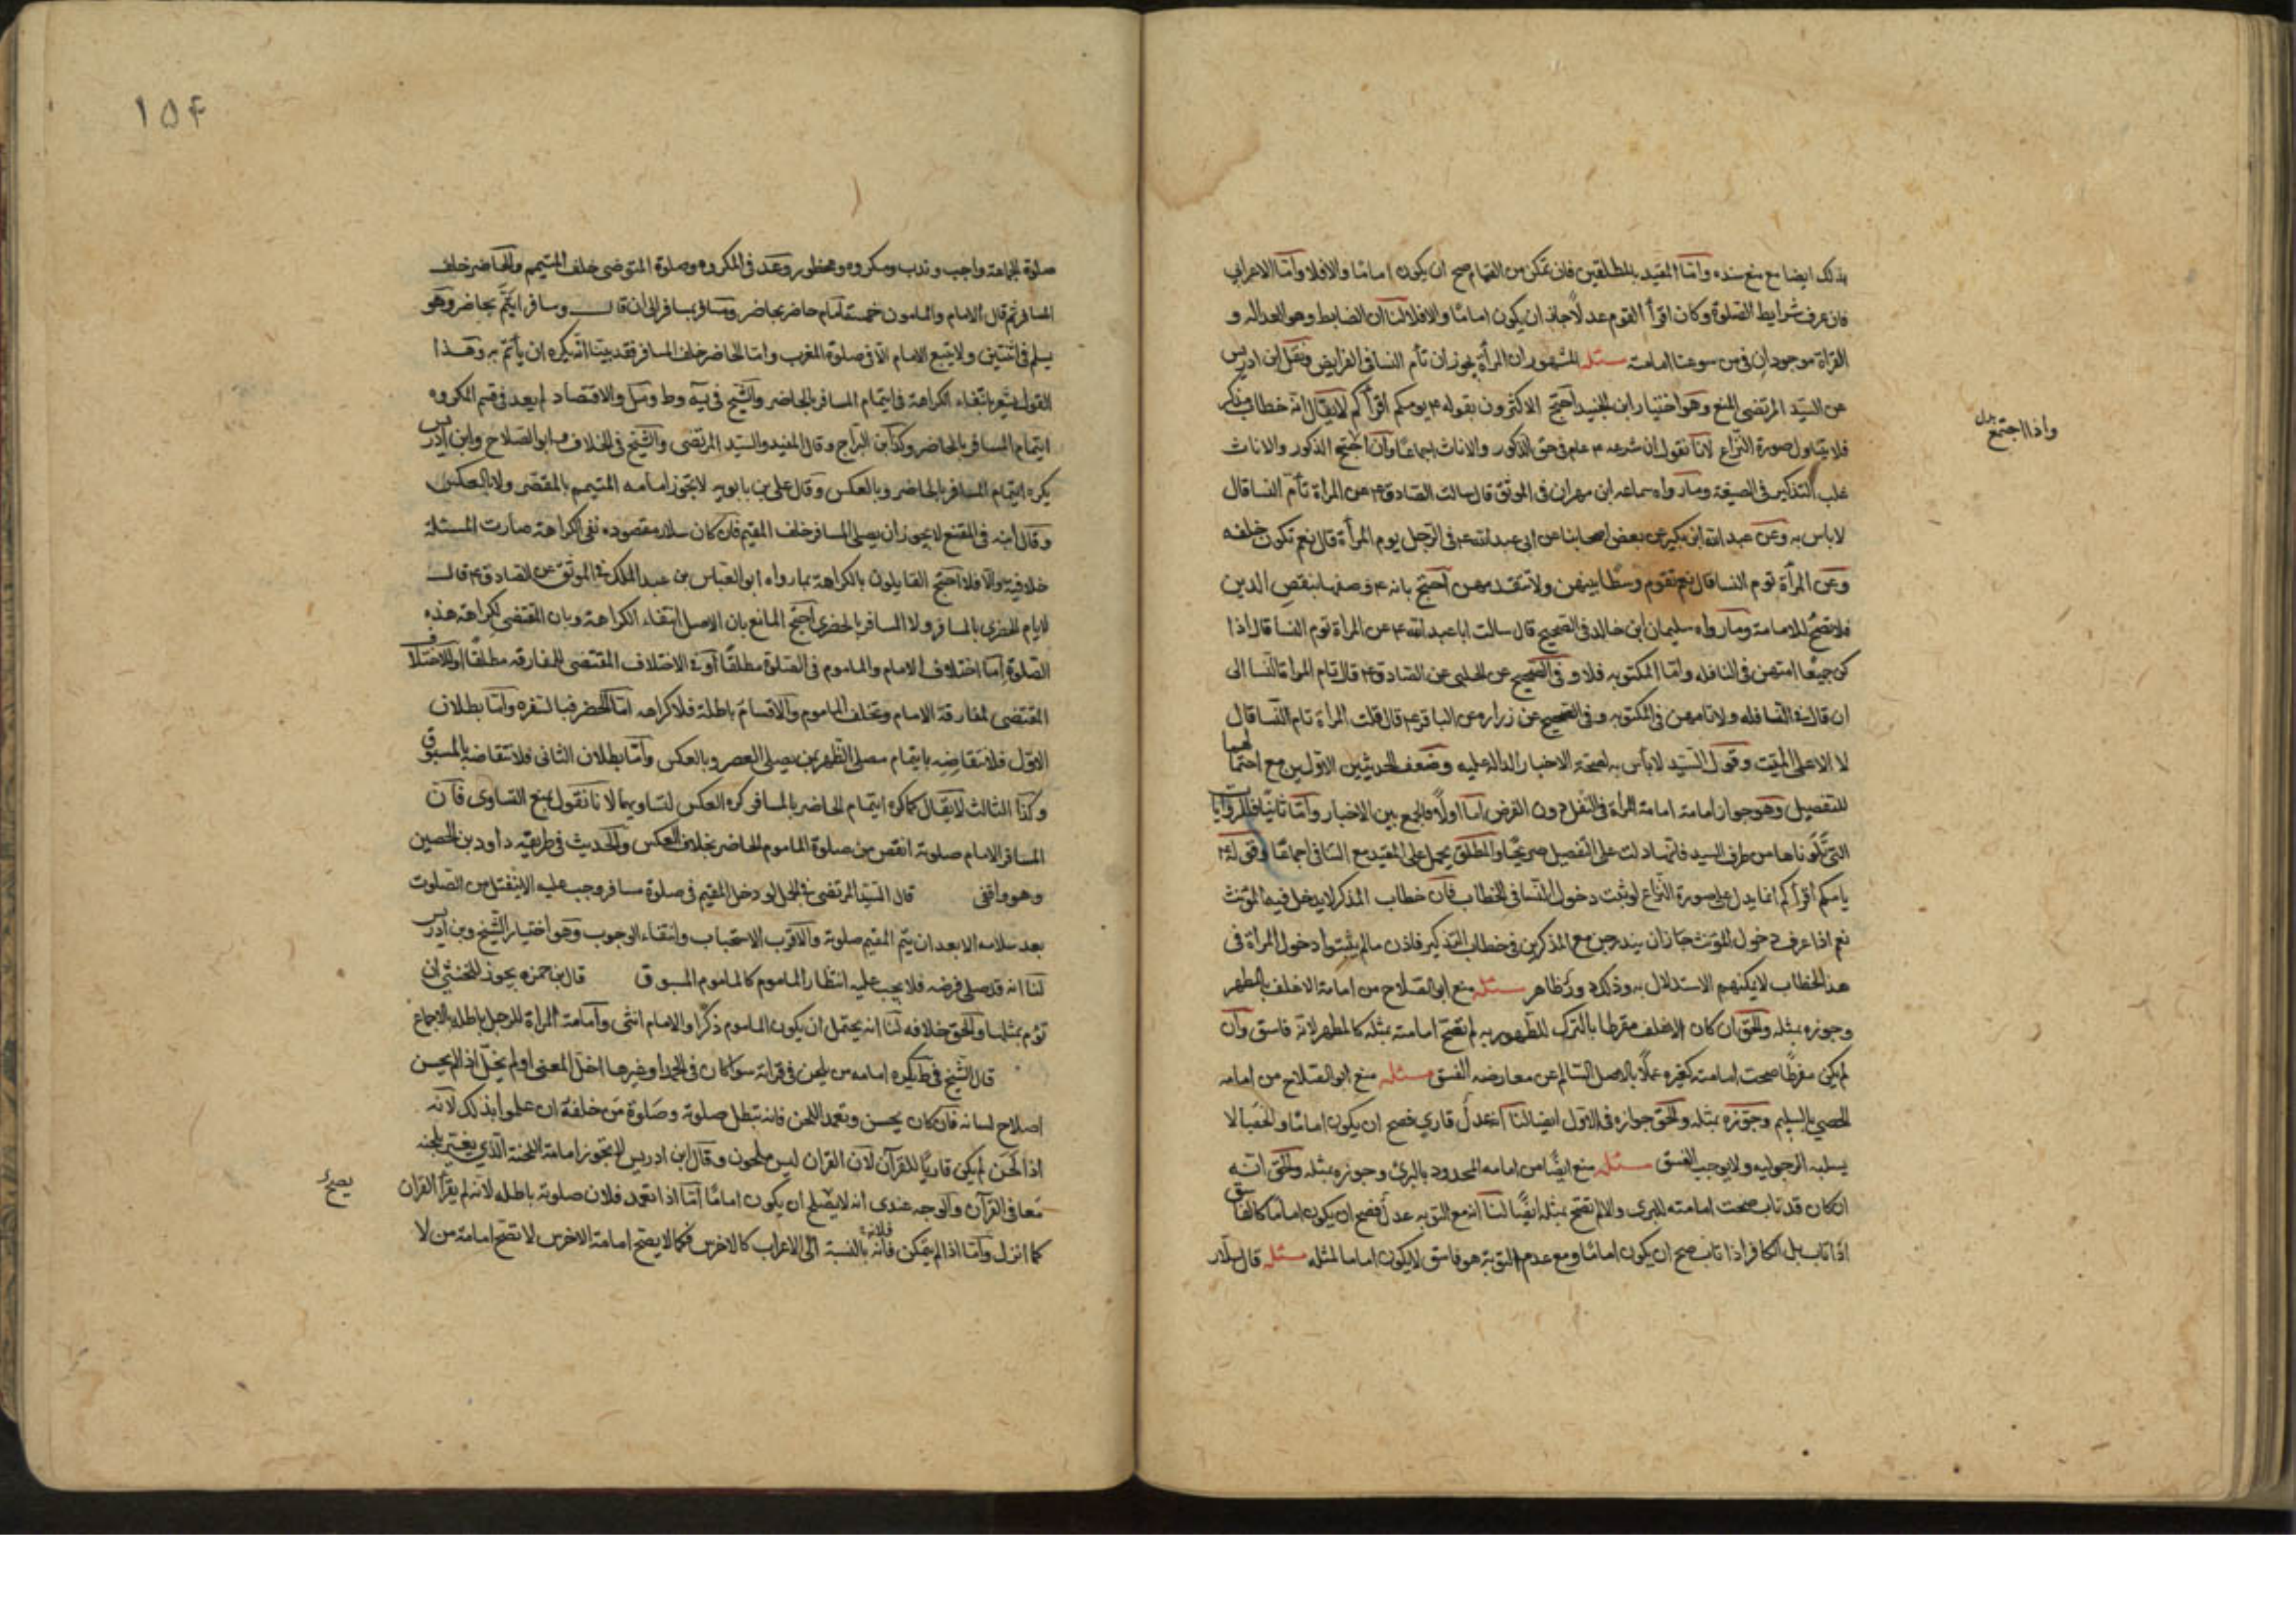 بذلك ايضا مع منع سنده وامّا المقيد بالمطلقين فان تمكن من القيام صح ان يكون اماما والا فلا وامّا الاعرابي
فان عرف شرايط الصّلوة وكان اقرأ القوم عدلاً جاز ان يكون اماما والا فلا لنا ان الضابط وهو العداله و
القراة موجودان فى من سوغنا امامته مسئله المشهور ان المرأة يجوز ان تأم النسا فى الفرايض ونقل ابن ادريس
عن السيّد المرتضى المنع وهو اختيار ابن الجنيد احتج الاكثرون بقوله ع يومكم اقرأكم لا يقال انّه خطاب مذكر
فلا يتناول صورة النّزاع لانا نقول ان شرعه ع عام فى حق الذكور والاناث اجماعًا وان اجتمع الذكور والاناث
غلب التذكير فى الصيغة وما رواه سماعه ابن مهران فى الموثق قال سالت الصادق ع عن المراة تأم النسا قال
لا باس به وعن عبد الله ابن بكير عن بعض اصحابنا عن ابى عبد الله ع فى الرّجل يوم المرأة قال نعم تكون خلفه
وعن المرأة توم النسا قال نعم تقوم وسطًا بينهن ولا تتقدمهن احتج بانه ع وصفها بنقص الدين
فلا تصحّ للامامة وما رواه سليمان ابن خالد فى الصحيح قال سالت ابا عبد الله ع عن المراة توم النسا قال اذا
كن جميعًا امتهن فى النافله وامّا المكتوبه فلا و فى الصحيح عن الحلبى عن الصادق ع قال تام المراة النّسا الى
ان قال فى النّافله ولا تامهن فى المكتوبه وفى الصحيح عن زراره عن الباقر ع قال قلت المراة تام النّسا قال
لا الا على الميّت وقول السيّد لا بأس به لصحّة الاخبار الدالة عليه وضعف الحديثين الاوّلين مع احتمالهما
للتفصيل وهو جواز امامته امامة المرأة فى النّفل دون الفرض اما اولًا فالجمع بين الاخبار وامّا ثانيًا فالروايات
الّتى تلوناها من طرف السيد فانّها دلت على التّفصيل صريحًا والمطلق يحمل على المقيد مع التنافى اجماعًا وقوله ع
يامكم اقرأكم انما يدل على صورة النّزاع لو ثبت دخول النّسا فى الخطاب فان خطاب المذكر لا يدخل فيه المؤنث
نعم اذا عرف دخول المؤنث جاز ان يندرجن مع المذكرين فى خطاب التذكير فاذن ما لم يثبتوا دخول المراة فى
هذا الخطاب لا يمكنهم الاستدلال به وذلك دور ظاهر مسئله منع ابو الصلاح من امامة الاغلف بالمطهر
وجوزه بمثله والحق ان كان الاغلف مفرطا بالترك للطهور به لم تصح امامته بمثله كالمطهر لانّه فاسق وان
لم يكن مفرطًا صحت امامته كغيره عملًا بالاصل السّالم عن معارضة الفسق مسئله منع ابو الصّلاح من امامه
الخصى بالسليم وجوّزه بمثله والحق جوازه فى الاوّل ايضا لنا انه عدل قاري فصح ان يكون اماما والخصا لا
يسلبه الرجوليه ولا يوجب الفسق مسئله منع ايضًا من امامه المحدود بالبرئ وجوزه بمثله والحق انّه
ان كان قد تاب صحت امامته للبرى والا لم تصح بمثله ايضًا لنا انه مع التوبه عدل فصح ان يكون اماما كالفاسق
اذا تاب بل الكافر اذا تاب صح ان يكون اماما ومع عدم التوبة هو فاسق لا يكون اماما لمثله مسئله قال سلّار
واذا اجتمع بدل
۱۵۴
صلوة الجماعة واجب وندب ومكروه ومحظور وعد فى المكروه وصلوة المتوضى خلف المتيمم والحاضر خلف
المسافر ثم قال الامام والمامون خمسة امام حاضر بحاضر ومسافر بمسافر الى ان قال ومسافر ايتمّ بحاضر وهو
يسلم فى اثنتين ولا يتبع الامام الّا فى صلوة المغرب وامّا الحاضر خلف المسافر فقد بيّنا انّه يكره ان يأتمّ به وهذا
القول يشعر بانتفاء الكراهة فى ايتمام المسافر بالحاضر والشّيخ فى يه وط ومل والاقتصاد لم يعد فى قسم المكروه
ايتمام المسافر بالحاضر وكذا ابن البرّاج وقال المفيد والسيّد المرتضى والشّيخ فى الخلاف وابو الصّلاح وابن ادريس
يكره ايتمام المسافر بالحاضر وبالعكس وقال على بن بابويه لا يجوز امامه المتيمم بالمقصّر ولا بالعكس
وقال ابنه فى المقنع لا يجوز ان يصلى المسافر خلف المقيم فان كان سلار مقصوده نفى الكراهة صارت المسئلة
خلافية والّا فلا احتج القايلون بالكراهة بما رواه ابو العبّاس بن عبد الملك فى الموثق عن الصّادق ع قال
لا يام الحضرى بالمسافر ولا المسافر بالحضرى احتج المانع بان الاصل انتفاء الكراهة وبان المقتضى لكراهة هذه
الصّلوة امّا اختلاف الامام والماموم فى الصّلوة مطلقًا او فى الاختلاف المقتضى للمفارقه مطلقًا او للاختلاف
المقتضى لمفارقة الامام وتخلف الماموم والاقسام باطلة فلا كراهه امّا الحصر فبالسفره وامّا بطلان
الاوّل فلانتقاضه بايتمام مصلى الظّهر بمن يصلى العصر وبالعكس وامّا بطلان الثانى فلانتقاضه بالمسبوق
وكذا الثالث لا يقال كما كره ايتمام الحاضر بالمسافر كره العكس لتساويهما لانا نقول نمنع التساوى فان
المسافر الامام صلوته انقص من صلوة الماموم الحاضر بخلاف العكس والحديث فى طريقه داود بن الحصين
وهو واقفى قال السيّد المرتضى فى الجمل لو دخل المقيم فى صلوة مسافر وجب عليه ان لا ينفتل من الصّلوت
بعد سلامه الا بعد ان يتمّ المقيم صلوته والاقرب الاستحباب وانتفاء الوجوب وهو اختيار الشّيخ وبن ادريس
لنا انه قد صلى فرضه فلا يجب عليه انتظار الماموم كالماموم المسبوق قال بن حمزه يجوز للخنثى ان
تؤم بمثلها والحق خلافه لنا انه يحتمل ان يكون الماموم ذكرًا والامام انثى وامامة المراة للرجل باطله بالاجماع
قال الشّيخ فى ط يكره امامه من يلحن فى قرائة سوا كان فى الحمد او غيرها اخلّ المعنى او لم يخلّ اذا لم يحسن
اصلاح لسانه فان كان يحسن وتعمد اللحن فانه تبطل صلوته وصلوة من خلفه ان علموا بذلك لانّه
اذا لحن لم يكن قاريًا للقرآن لان القران ليس ملحون وقال ابن ادريس لا تجوز امامة اللحنة الّذي يغيّر بلحنه
معانى القرآن والوجه عندى انه لا يصلح ان يكون امامًا امّا اذا تعمد فلان صلوته باطله لانّه لم يقرأ القران
كما انزل وامّا اذا لم يتمكن فلانه بالنسبة الى الاعراب كالاخرس فكما لا يصح امامة الاخرس لا تصح امامة من لا
يصح